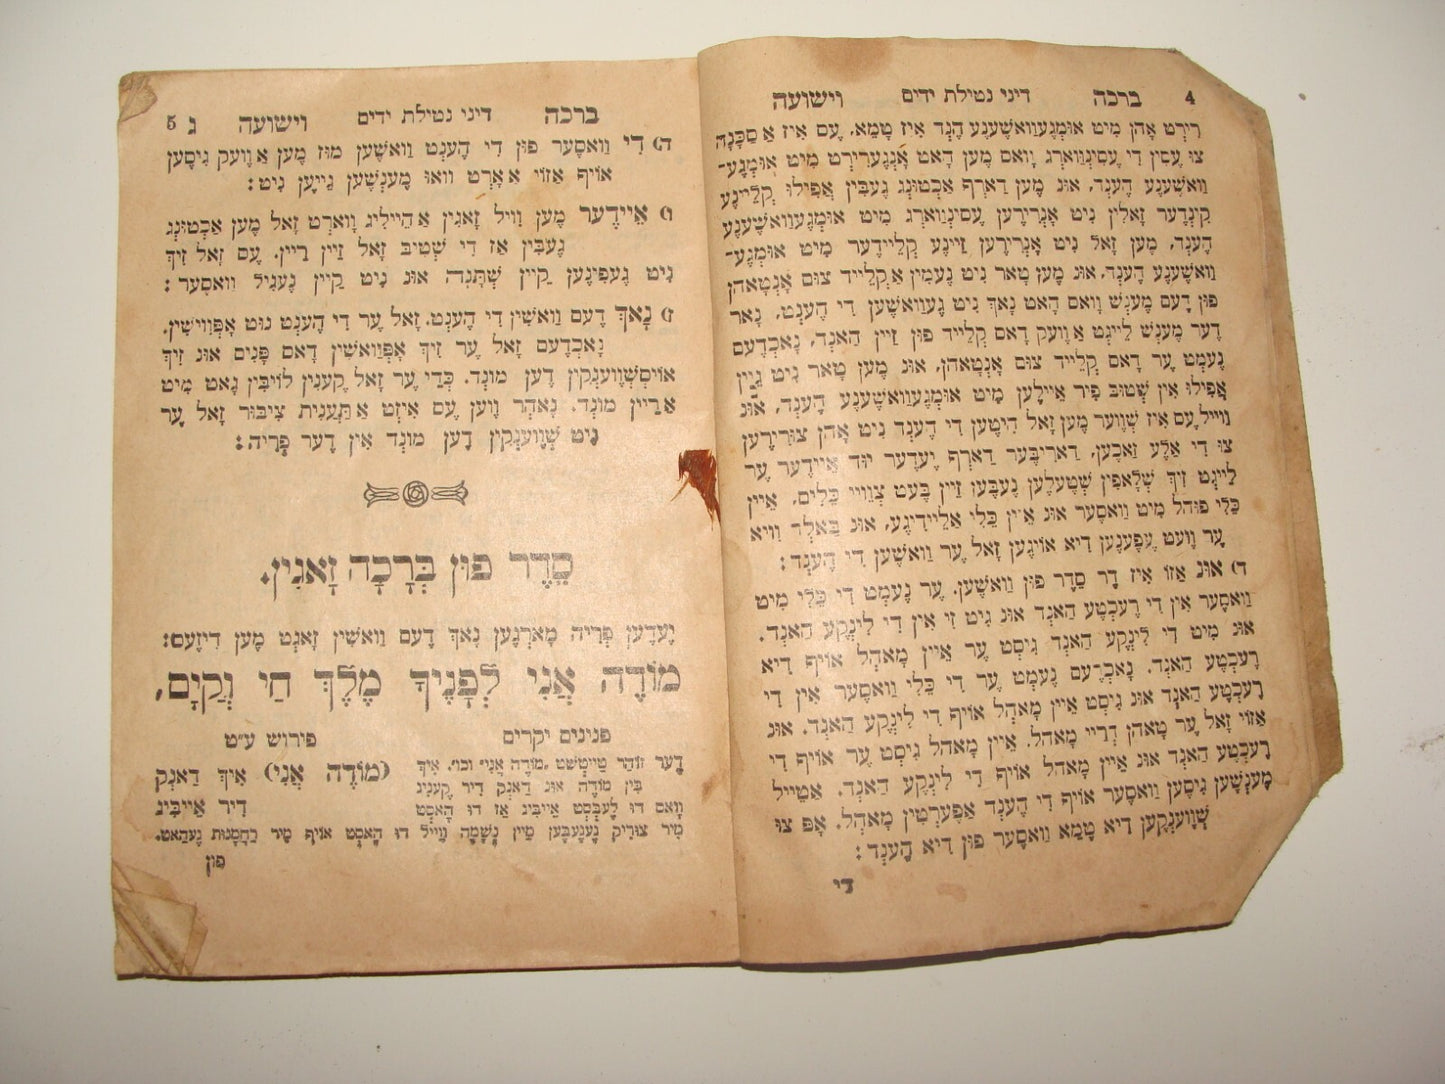 4 ברכה דיני נטילת ידים וישועה
רירְט אָהן מִיט אוּמְגעֶוואַשֶׁענֶע הֶנְד אִיז טָמֵא, עֶם אִיז אַ סַכָּנָה
צוּ עֶסִין דִי עֶסִינְווארג וָואס מֶען הָאט אָנְגֶערִירְט מִיט אוּמְגֶע־
וואַשֶׁענֶע הֶענְד, אוּנ מֶען דַארְף אַכְטוּנְג גֶעבִּין אֲפִילוּ קְלֵיינֶע
קִינְדֶער זָאלִין נִיט אָנְרִירֶען עֶסִינְווארְג מִיט אוּמְגֶעוואַשֶׁענֶע
הֶענְד, מֶען זָאל נִיט אָנְרִירֶען זַיינֶע קְלֵיידֶער מִיט אוּמְגֶע־
וואַשֶׁענֶע הֶענְד, אוּנ מֶען טָאר נִיט נֶעמִין אַ קְלֵייד צוּם אָנְטָאהן
פוּן דֶעם מֶענְשׁ וָואם הָאט נָאךְ נִיט גֶעוואַשֶׁען דִי הֶענְט, נָאר
דֶער מֶענְשׁ לֵייגְט אַוֶועק דָאם קְלֵייד פוּן זַיין הַאנְד, נָאכְדֶעם
נֶעמְט עֶר דָאם קְלֵייד צוּם אָנְטָאהן, אוּנ מֶען טָאר נִיט גֵיין
אֲפִילוּ אִין שְׁטוּב פִיר אֵיילֶען מִיט אוּמְגֶעוואַשֶׁענֶע הֶענְד, אוּנ
ווַייל עֶם אִיז שְׁווער מֶען זָאל הִיטֶען דִי הֶענְד נִיט אָהן צוּרִירֶען
צוּ דִי אַלֶע זַאכֶען, דַארִיבֶּער דַארְף יֶעדֶער יוּד אֵיידֶער עֶר
לֵייגְט זִיךְ שְׁלָאפִין שְׁטֶעלֶען נֶעבֶּען זַיין בֶּעט צְווֵיי כֵּלִים, אֵיין
כֵּלִי פוּהל מִיט ווַאסֶער אוּנ אֵיין כֵּלִי אַ לֵיידִיגֶע, אוּנ בַּאלְד ווִיא
עֶר ווֶעט עֶפֶענֶען דִיא אוֹיגֶען זָאל עֶר ווַאשֶׁען דִי הֶענְד:
ד) אוּנ אַזוֹ אִיז דֶר סֵדֶר פוּן ווַאשֶׁען. עֶר נֶעמְט דִי כֵּלִי מִיט
ווַאסֶער אִין דִי רֶעכְטֶע הַאנְד אוּנ גִיט זִי אִין דִי לִינְקֶע הַאנְד.
אוּנ מִיט דִי לִינְקֶע הַאנְד גִיסְט עֶר אֵיין מָאהְל אוֹיף דִיא
רֶעכְטֶע הַאנְד. נָאכְדֶעם נֶעמְט עֶר דִי כֵּלִי ווַאסֶער אִין דִי
רֶעכְטֶע הַאנְד אוּנ גִיסְט אֵיין מָאהְל אוֹיף דִי לִינְקֶע הַאנְד. אוּנ
אַזוֹי זָאל עֶר טָאהן דְרֵיי מָאהל. אֵיין מָאהל גִיסְט עֶר אוֹיף דִי
רֶעכְטֶע הַאנְד אוּנ אֵיין מָאהל אוֹיף דִי לִינְקֶע הַאנְד. אַ טֵייל
מֶענְשֶׁען גִיסֶען ווַאסֶער אוֹיף דִי הֶענְד אַ פֶערְטִין מָאהל. אָפּ צוּ
שְׁווֶענְקֶען דִיא טָמֵא ווַאסֶער פוּן דִיא הֶענְד:
די
ברכה דיני נטילת ידים וישועה ג 5
ה) דִי ווַאסֶער פוּן דִי הֶענְט ווַאשֶׁען מוּז מֶען אַוֶועק גִיסֶען
אוֹיף אַזוֹי אַ אָרְט ווֹאוּ מֶענְשֶׁען גֵייעֶן נִיט:
ו) אֵיידֶער מֶען ווִיל זָאגִין אַ הֵיילִיג ווָארְט זָאל מֶען אַכְטוּנְג
גֶעבִּין אַז דִי שְׁטִיבּ זָאל זַיין רֵיין. עֶם זָאל זִיךְ
נִיט גֶעפִינֶען קַיין שְׁתָּנָה אוּנ נִיט קַיין נֶעגִיל ווַאסֶער:
ז) נָאךְ דֶעם ווַאשִׁין דִי הֶענְט. זָאל עֶר דִי הֶענְט גוּט אָפְּווִישִׁין.
נָאכְדֶעם זָאל עֶר זִיךְ אָפְּווַאשִׁין דָאם פָּנִים אוּנ זִיךְ
אוֹיסְשְׁווֶענְקִין דֶען מוּנְד. כְּדֵי עֶר זָאל קֶענִין לוֹיבִּין גָאט מִיט
אַ רֵיין מוּנְד. נָאהר ווֶען עֶם אִיזְט אַ תַּעֲנִית צִיבּוּר זָאל עֶר
נִיט שְׁווֶענְקִין דֶען מוּנְד אִין דֶער פְרִיה:
סֵדֶר פוּן בְּרָכָה זָאגִין.
יֶעדֶען פְרִיה מָארְגֶען נָאךְ דֶעם ווַאשִׁין זָאגְט מֶען דִיזֶעם:
מוֹדֶה אֲנִי לְפָנֶיךָ מֶלֶךְ חַי וְקַיָם,
פנינים יקרים
דֶער זוֹהַר טַייטְשְׁט „מוֹדֶה אֲנִי" וכו', אִיךְ
בִּין מוֹדֶה אוּנ דַאנְק דִיר קֶענִיג
ווָאס דוּ לֶעבְּסְט אֵייבִּיג אַז דוּ הָאסְט
מִיר צוּרִיק גֶעגֶעבֶּען מַיין נְשָׁמָה ווַייל דוּ הָאסְט אוֹיף מִיר רַחֲמָנוּת גֶעהַאט.
פירוש ע״ט
(מוֹדֶה אֲנִי) אִיךְ דַאנְק
דִיר אֵייבִּיג
פוּן